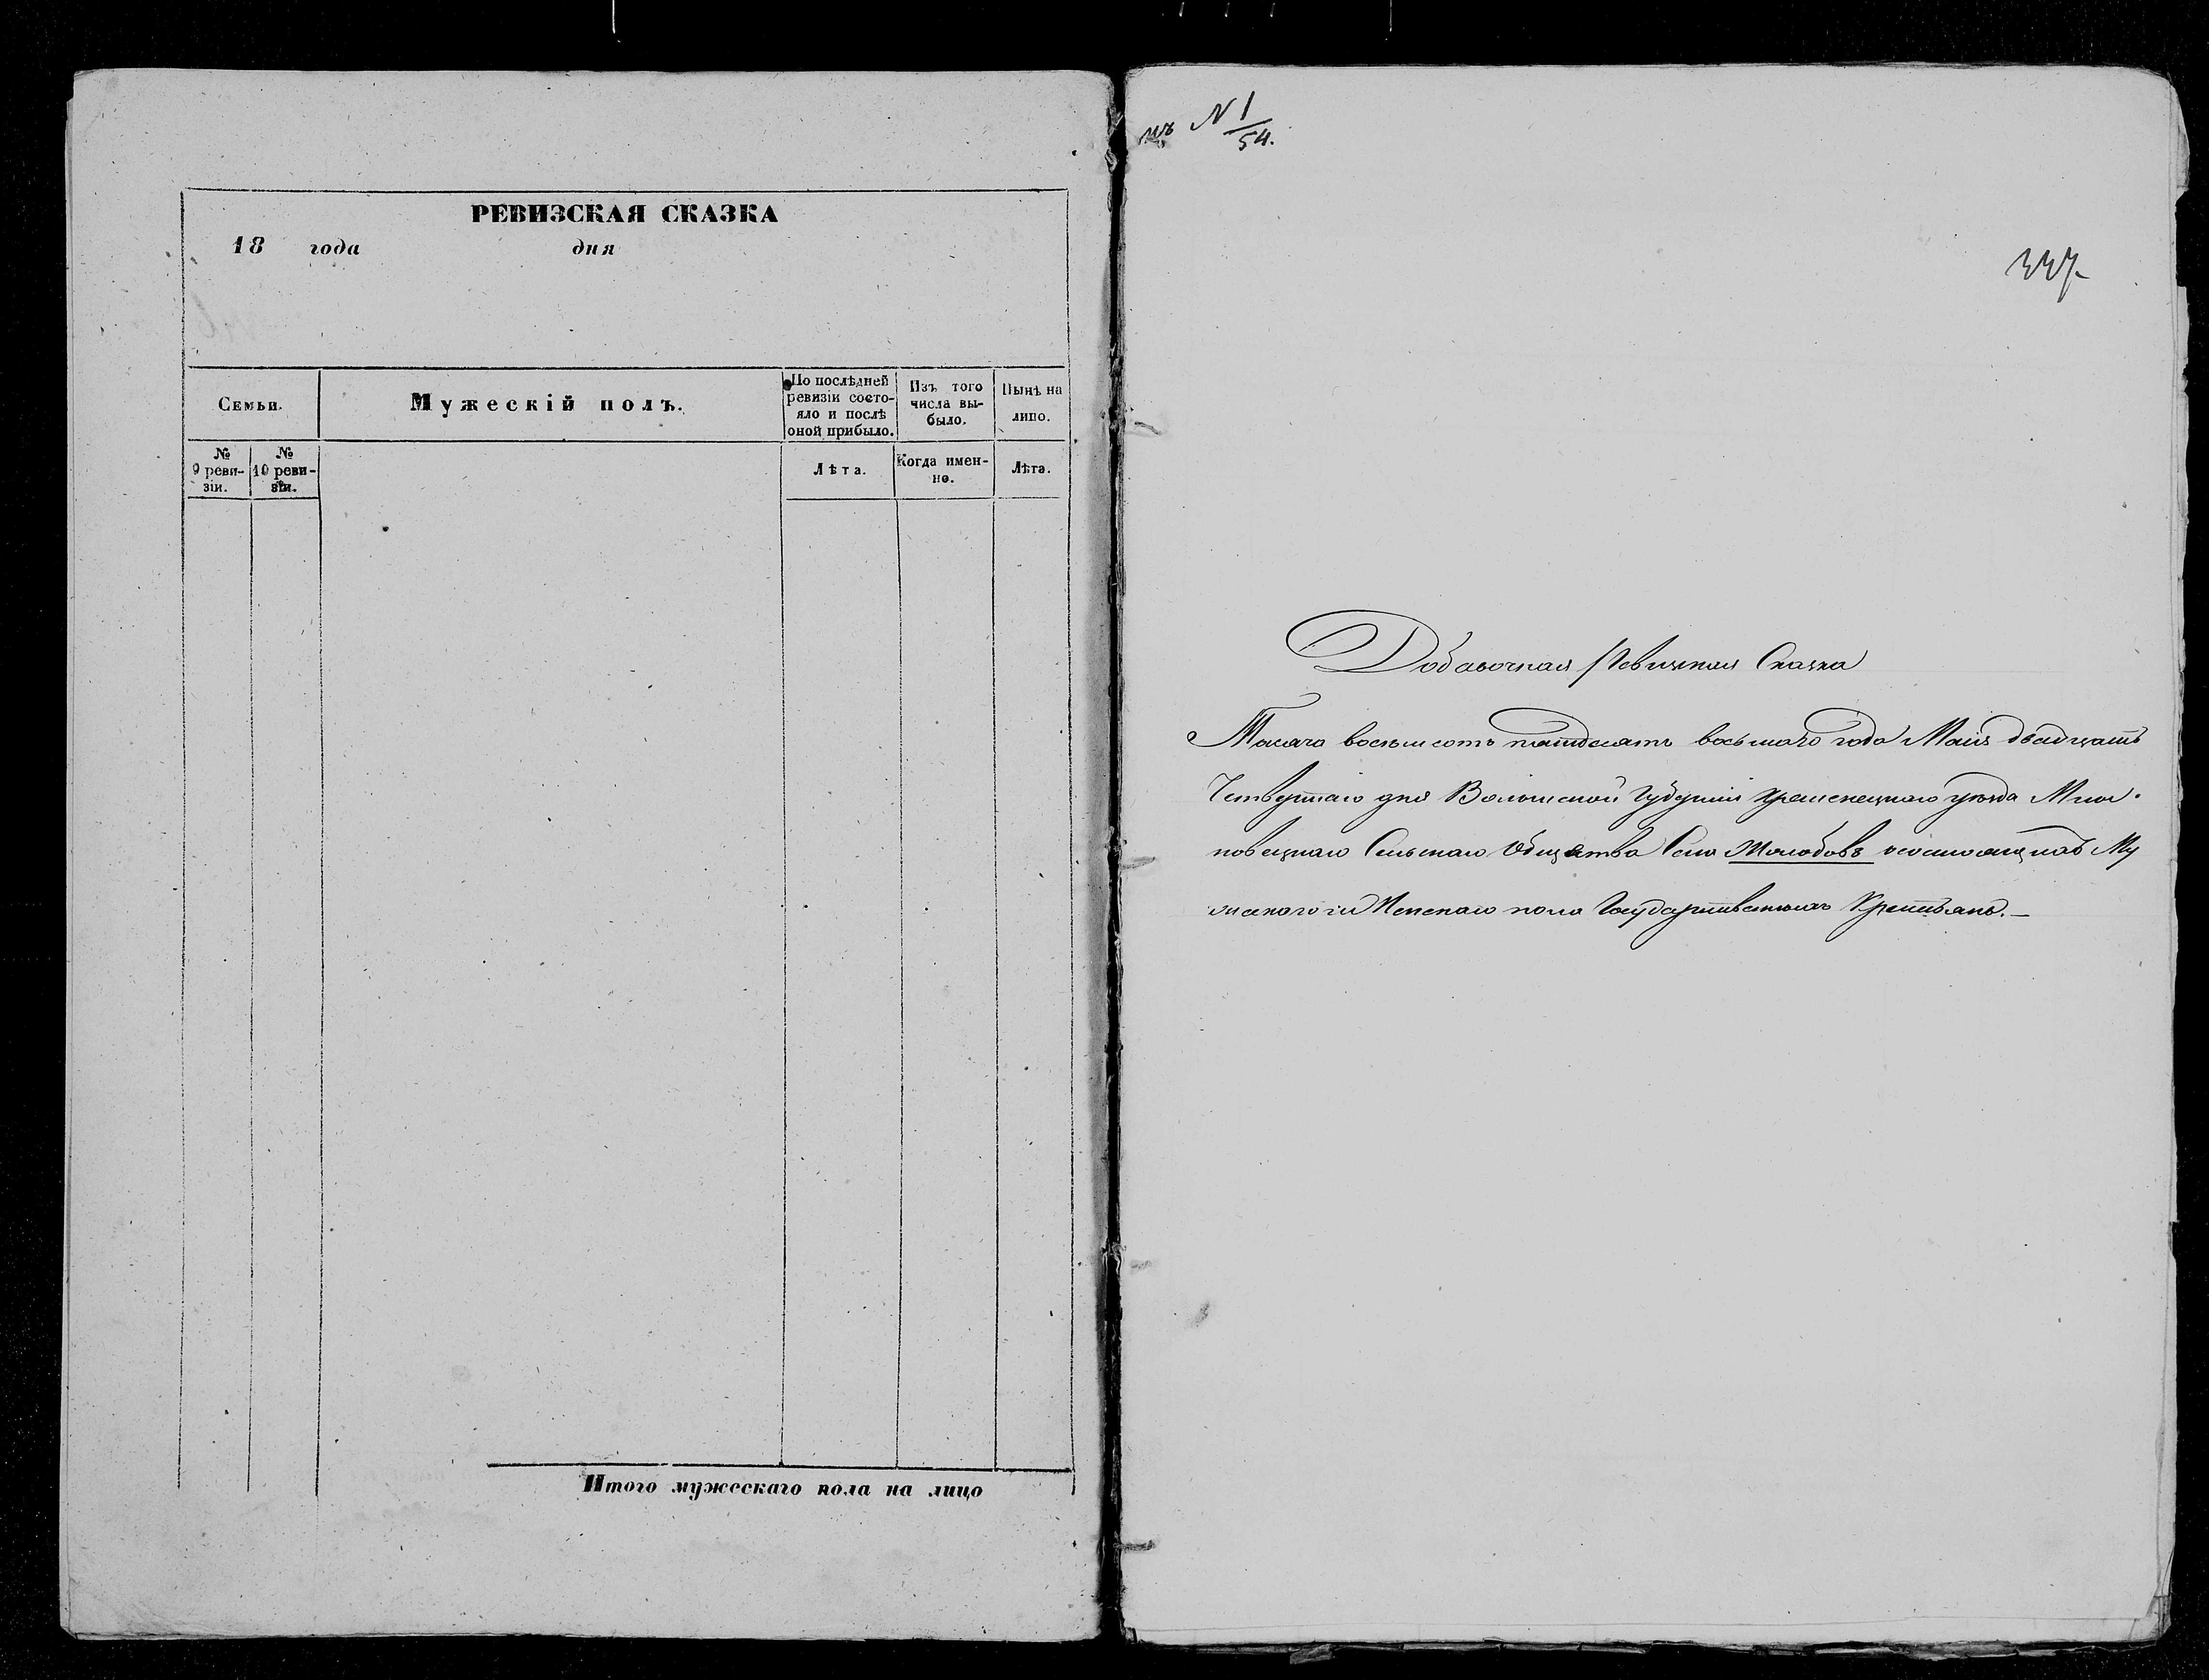 РЕВИЗСКАЯ СКАЗКА
18 года дня
Семьи.
Мужескій полъ.
По послѣдней
ревизіи состо-
яло и послѣ
оной прибыло.
Изъ того
числа вы-
было.
Нынѣ на
лицо.
№
9 реви-
зіи.
№
10 реви-
зіи.
Лѣта.
Когда имен-
но.
Лѣта.
Итого мужескаго пола на лицо
N 1
54.
337.
Добавочная Ревизкая Сказка
Тысяча восемьсотъ пятдесятъ восьмого года Маія двадцать
Четвертаго дня Волынской Губерніи Кременецкаго уезда
Сельскаго Общества Села Молодовъ о состоящихъ Му
жескаго и Женскаго пола Государственныхъ Крестьянъ.—